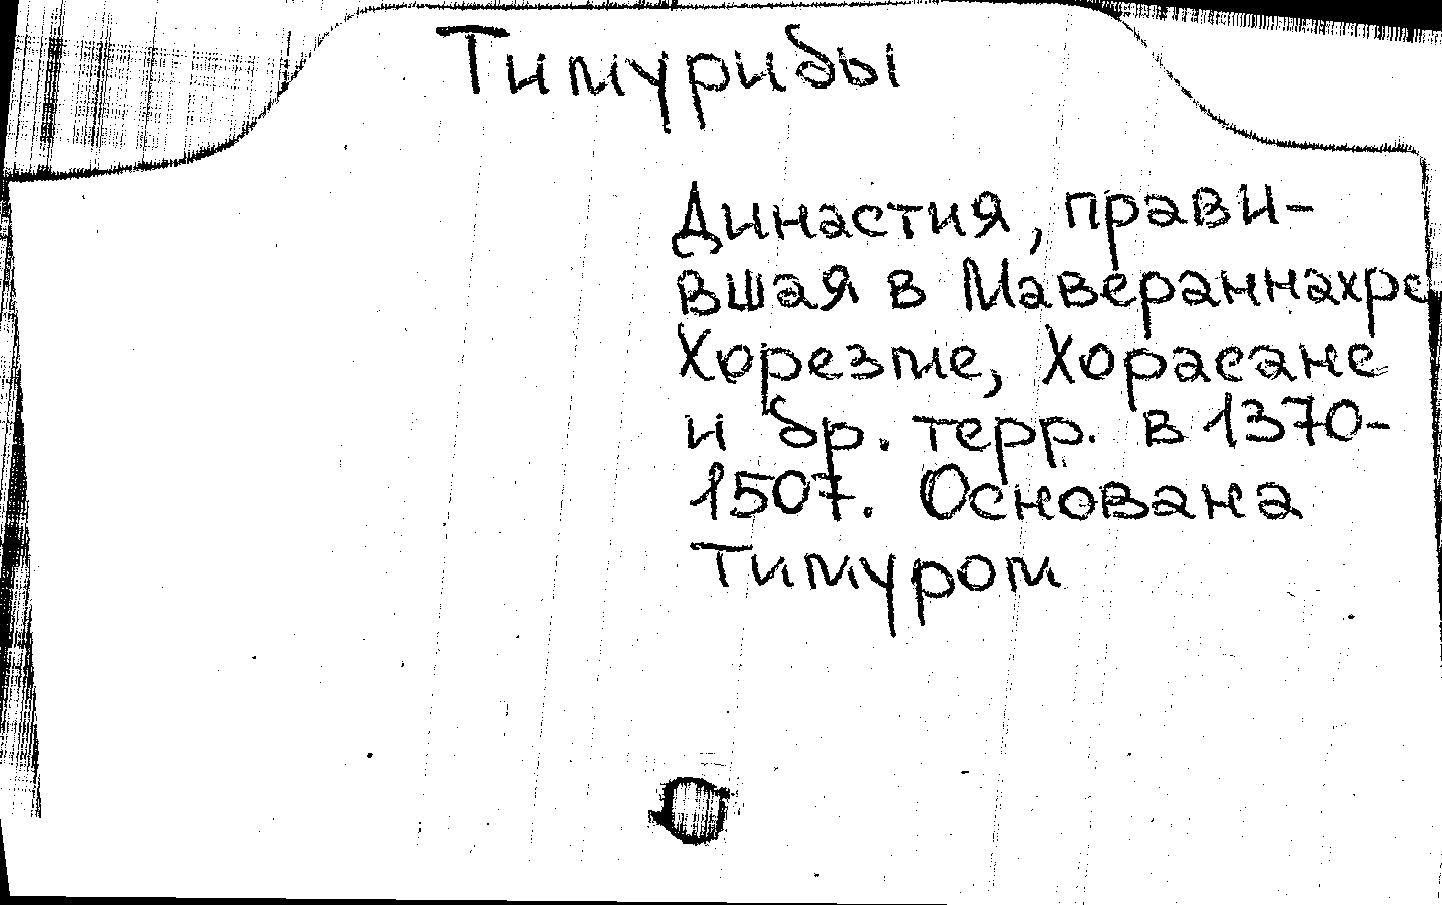 Тимуриды
Династия, прави-
вшая в Мавераннахре
Хорезме, Хорасане
и др. терр. в 1370-
1507. Основана
Тимуром